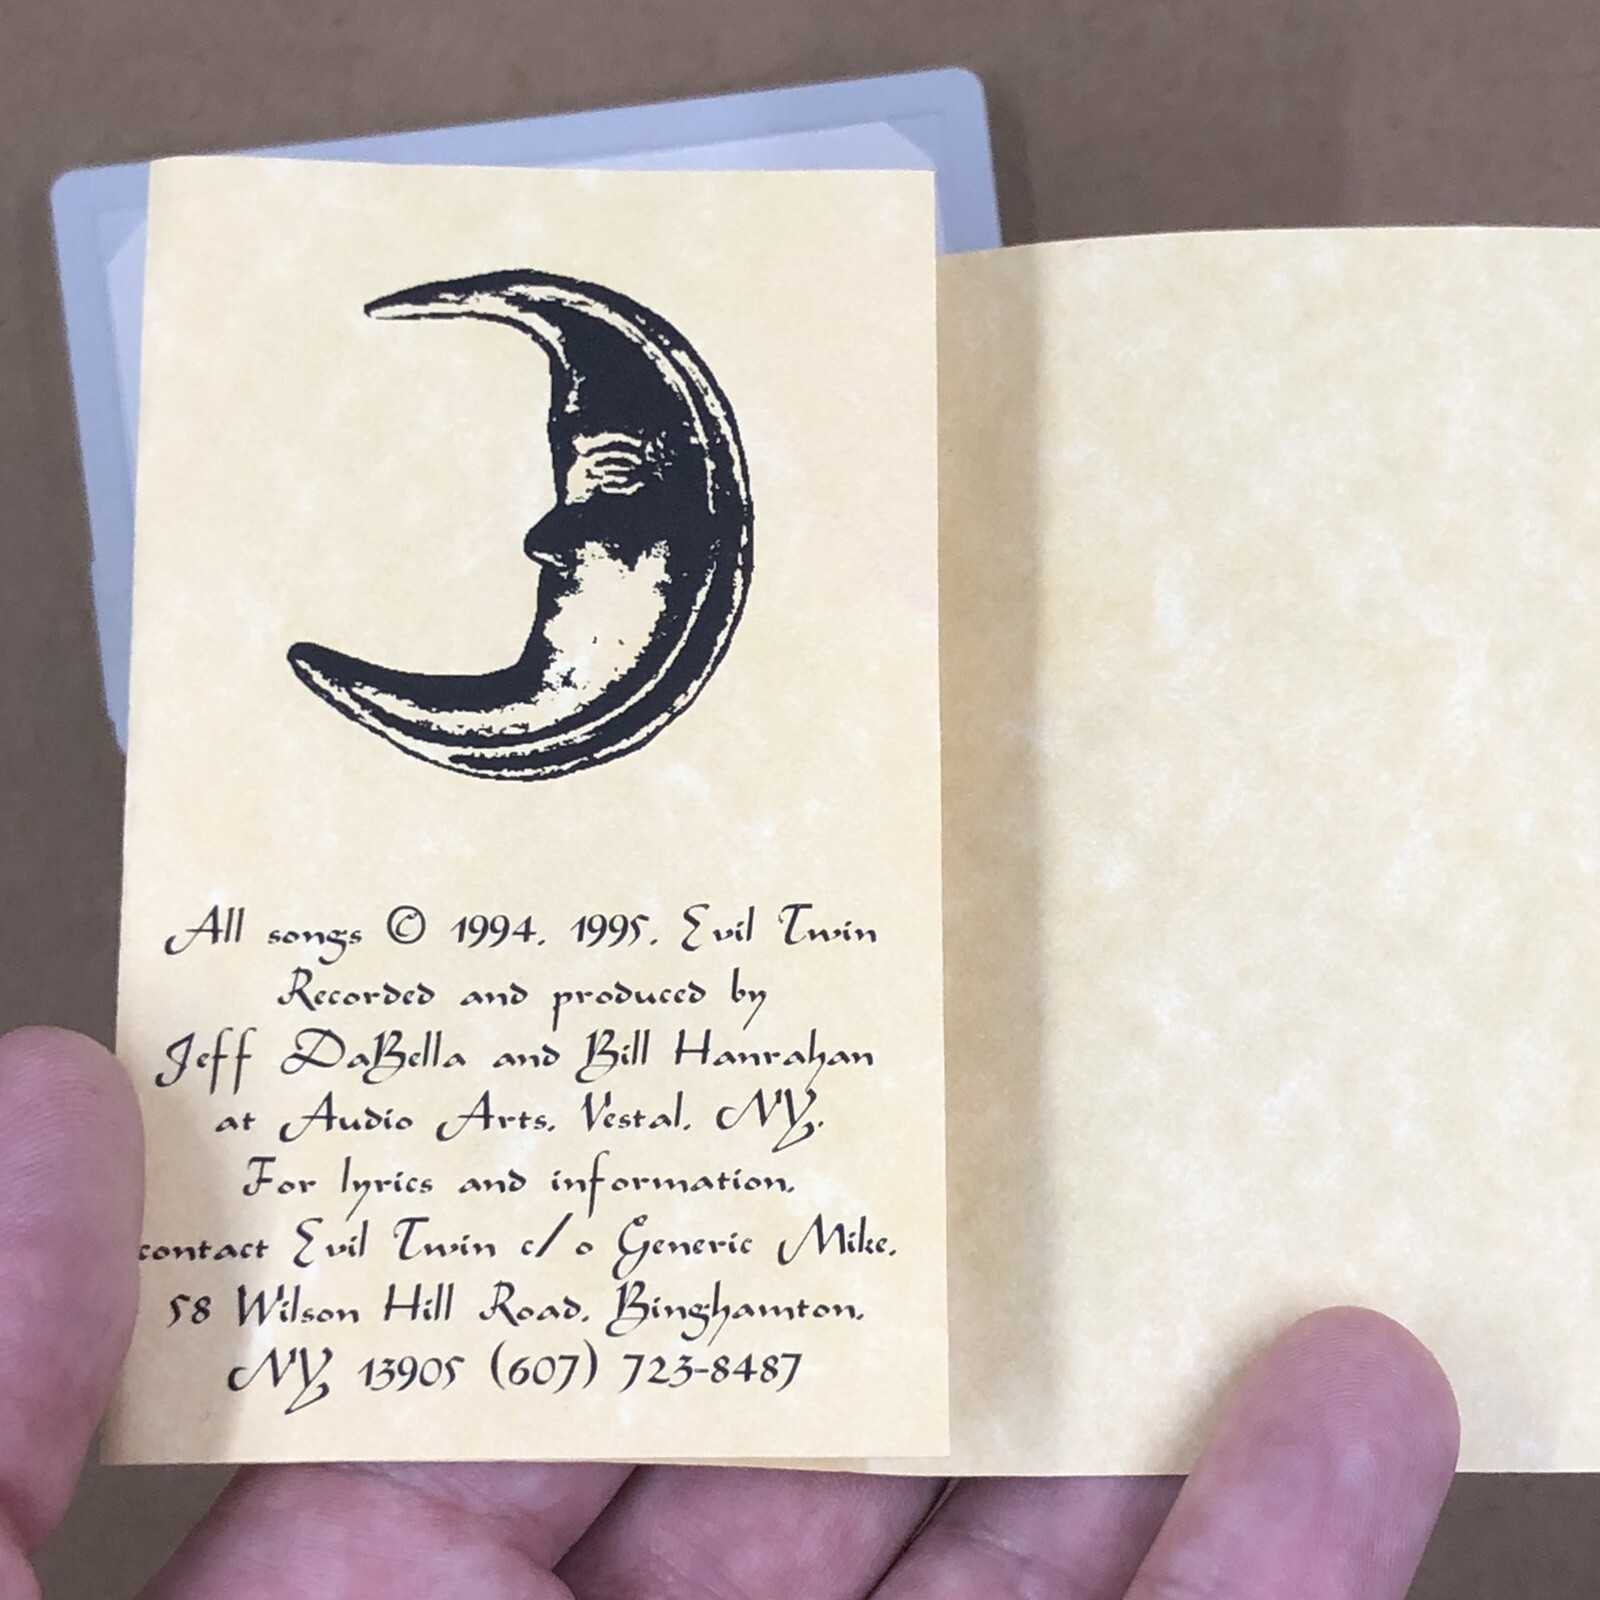 All songs © 1994, 1995, Evil Twin
Recorded and produced by
Jeff DaBella and Bill Hanrahan
at Audio Arts, Vestal, NY.
For lyrics and information,
contact Evil Twin c/o Generic Mike,
58 Wilson Hill Road, Binghamton,
NY 13905 (607) 723-8487